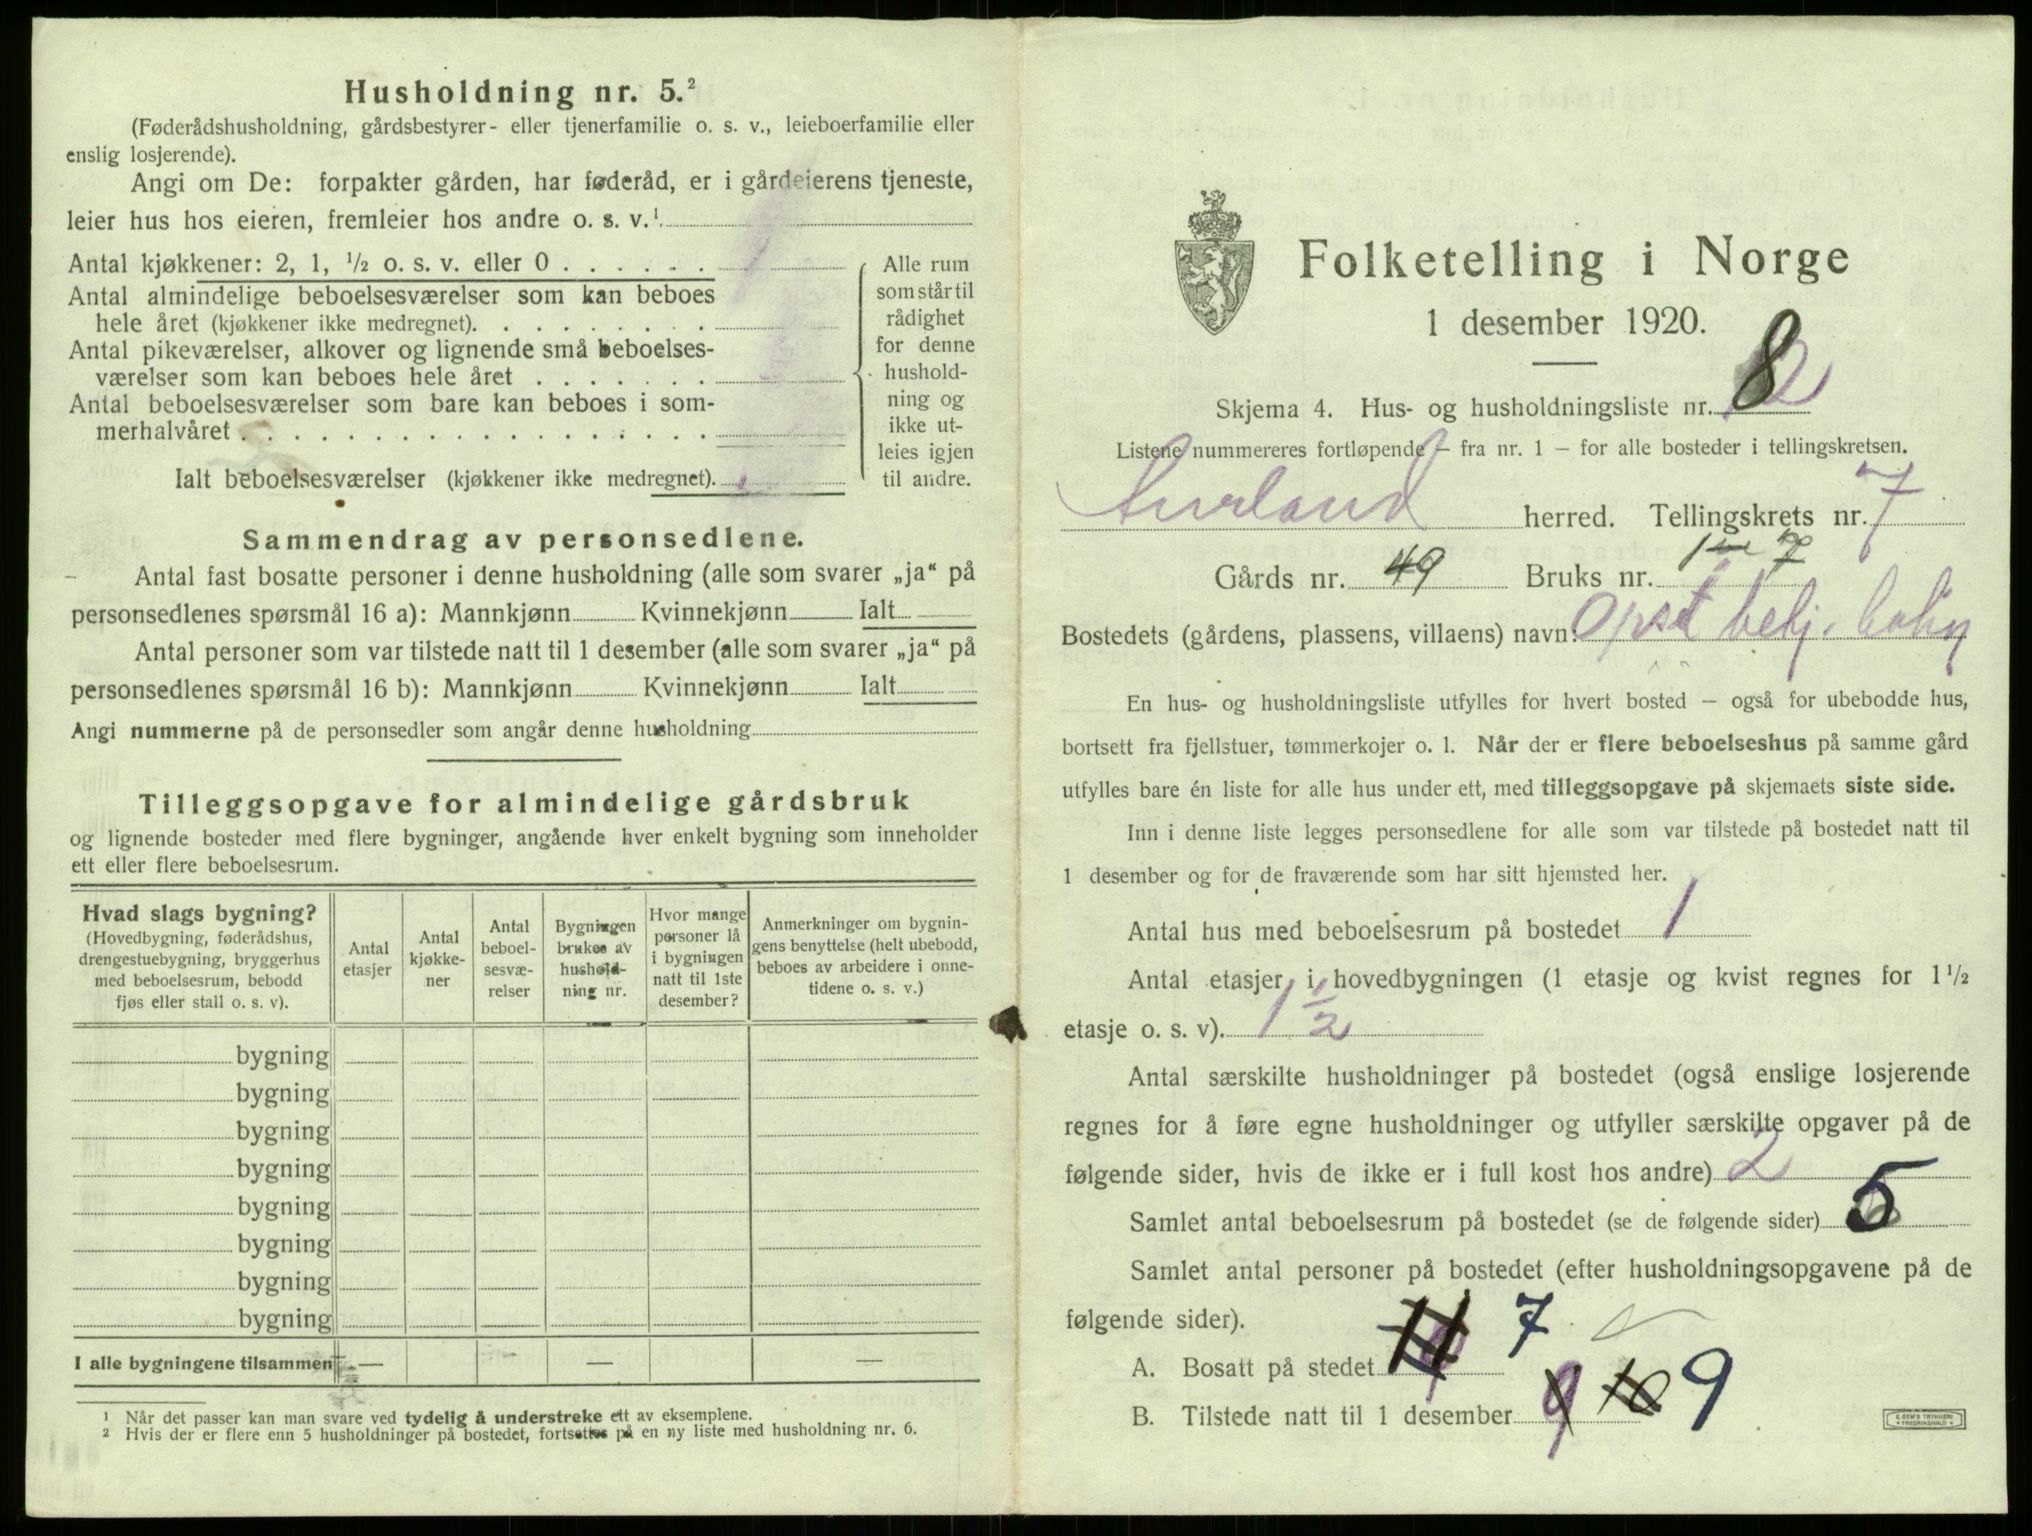 Husholdning nr. 5.²
(Føderådshusholdning, gårdsbestyrer- eller tjenerfamilie o. s. v., leieboerfamilie eller
enslig losjerende).
Angi om De: forpakter gården, har føderåd, er i gårdeierens tjeneste,
leier hus hos eieren, fremleier hos andre o. s. v.¹
Antal kjøkkener: 2, 1, ½ o. s. v. eller 0 . . . . . .
Antal almindelige beboelsesværelser som kan beboes
hele året (kjøkkener ikke medregnet). . . . . . . . .
Antal pikeværelser, alkover og lignende små beboelses-
værelser som kan beboes hele året . . . . . . .
Antal beboelsesværelser som bare kan beboes i som-
merhalvåret . . . . . . . . . . . . . . . . . .
Ialt beboelsesværelser (kjøkkener ikke medregnet).
Alle rum
som står til
rådighet
for denne
hushold-
ning og
ikke ut-
leies igjen
til andre.
Sammendrag av personsedlene.
Antal fast bosatte personer i denne husholdning (alle som svarer „ja“ på
personsedlenes spørsmål 16 a): Mannkjønn Kvinnekjønn Ialt
Antal personer som var tilstede natt til 1 desember (alle som svarer „ja“ på
personsedlenes spørsmål 16 b): Mannkjønn Kvinnekjønn Ialt
Angi nummerne på de personsedler som angår denne husholdning
Tilleggsopgave for almindelige gårdsbruk
og lignende bosteder med flere bygninger, angående hver enkelt bygning som inneholder
ett eller flere beboelsesrum.
Hvad slags bygning?
(Hovedbygning, føderådshus,
drengestuebygning, bryggerhus
med beboelsesrum, bebodd
fjøs eller stall o. s. v).
Antal
etasjer
Antal
kjøkke-
ner
Antal
beboel-
sesvæ-
relser
Bygningen
brukes av
hushold-
ning nr.
Hvor mange
personer lå
i bygningen
natt til 1ste
desember?
Anmerkninger om bygnin-
gens benyttelse (helt ubebodd,
beboes av arbeidere i onne-
tidene o. s. v.)
bygning
bygning
bygning
bygning
bygning
bygning
bygning
bygning
I alle bygningene tilsammen — — —
¹ Når det passer kan man svare ved tydelig å understreke ett av eksemplene.
² Hvis der er flere enn 5 husholdninger på bostedet, fortsettes på en ny liste med husholdning nr. 6.
Folketelling i Norge
1 desember 1920.
Skjema 4. Hus- og husholdningsliste nr. 8
Listene nummereres fortløpende – fra nr. 1 – for alle bosteder i tellingskretsen.
Aurland herred. Tellingskrets nr. 7
Gårds nr. 49 Bruks nr. 7
Bostedets (gårdens, plassens, villaens) navn:
En hus- og husholdningsliste utfylles for hvert bosted – også for ubebodde hus,
bortsett fra fjellstuer, tømmerkojer o. l. Når der er flere beboelseshus på samme gård
utfylles bare én liste for alle hus under ett, med tilleggsopgave på skjemaets siste side.
Inn i denne liste legges personsedlene for alle som var tilstede på bostedet natt til
1 desember og for de fraværende som har sitt hjemsted her.
Antal hus med beboelsesrum på bostedet 1
Antal etasjer i hovedbygningen (1 etasje og kvist regnes for 1½
etasje o. s. v). 1½
Antal særskilte husholdninger på bostedet (også enslige losjerende
regnes for å føre egne husholdninger og utfyller særskilte opgaver på de
følgende sider, hvis de ikke er i full kost hos andre) 2
Samlet antal beboelsesrum på bostedet (se de følgende sider) 5
Samlet antal personer på bostedet (efter husholdningsopgavene på de
følgende sider).
A. Bosatt på stedet 11 7
B. Tilstede natt til 1 desember 9 10 9
E. SEM'S TRYKKERI
• FREDRIKSHALD •